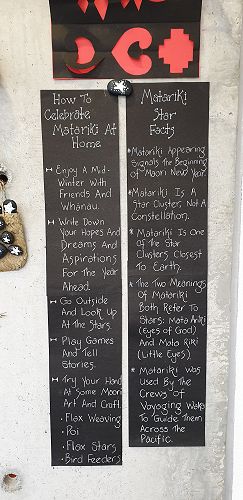 How To
Celebrate
Matariki At
Home
Enjoy A Mid-
Winter With
Friends And
Whanau.
Write Down
Your Hopes And
Dreams And
Aspirations
For The Year
Ahead.
Go Outside
And Look Up
At The Stars.
Play Games
And Tell
Stories.
Try Your Hand
At Some Maori
Art And Craft.
• Flax Weaving
• Poi
• Flax Stars
• Bird Feeders
Matariki
Star
Facts
* Matariki Appearing
Signals The Beginning
of Maori New Year.
* Matariki Is A
Star Cluster, Not A
Constellation.
* Matariki Is One
Of The Star
Clusters Closest
To Earth.
* The Two Meanings
Of Matariki
Both Refer To
Stars: Mata Ariki
(Eyes of God)
And Mata Riki
(Little Eyes)
* Matariki Was
Used By The
Crews of
Voyaging Waka
To Guide Them
Across The
Pacific.